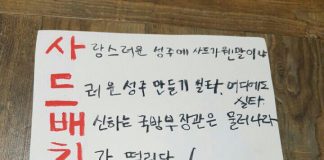 사랑스러운 성주에 사드가 웬말이냐
드러운 성주 만들기 싫타. 어디에도 싫타
배신하는 국방부장관은 물러나라
치가 떨린다!